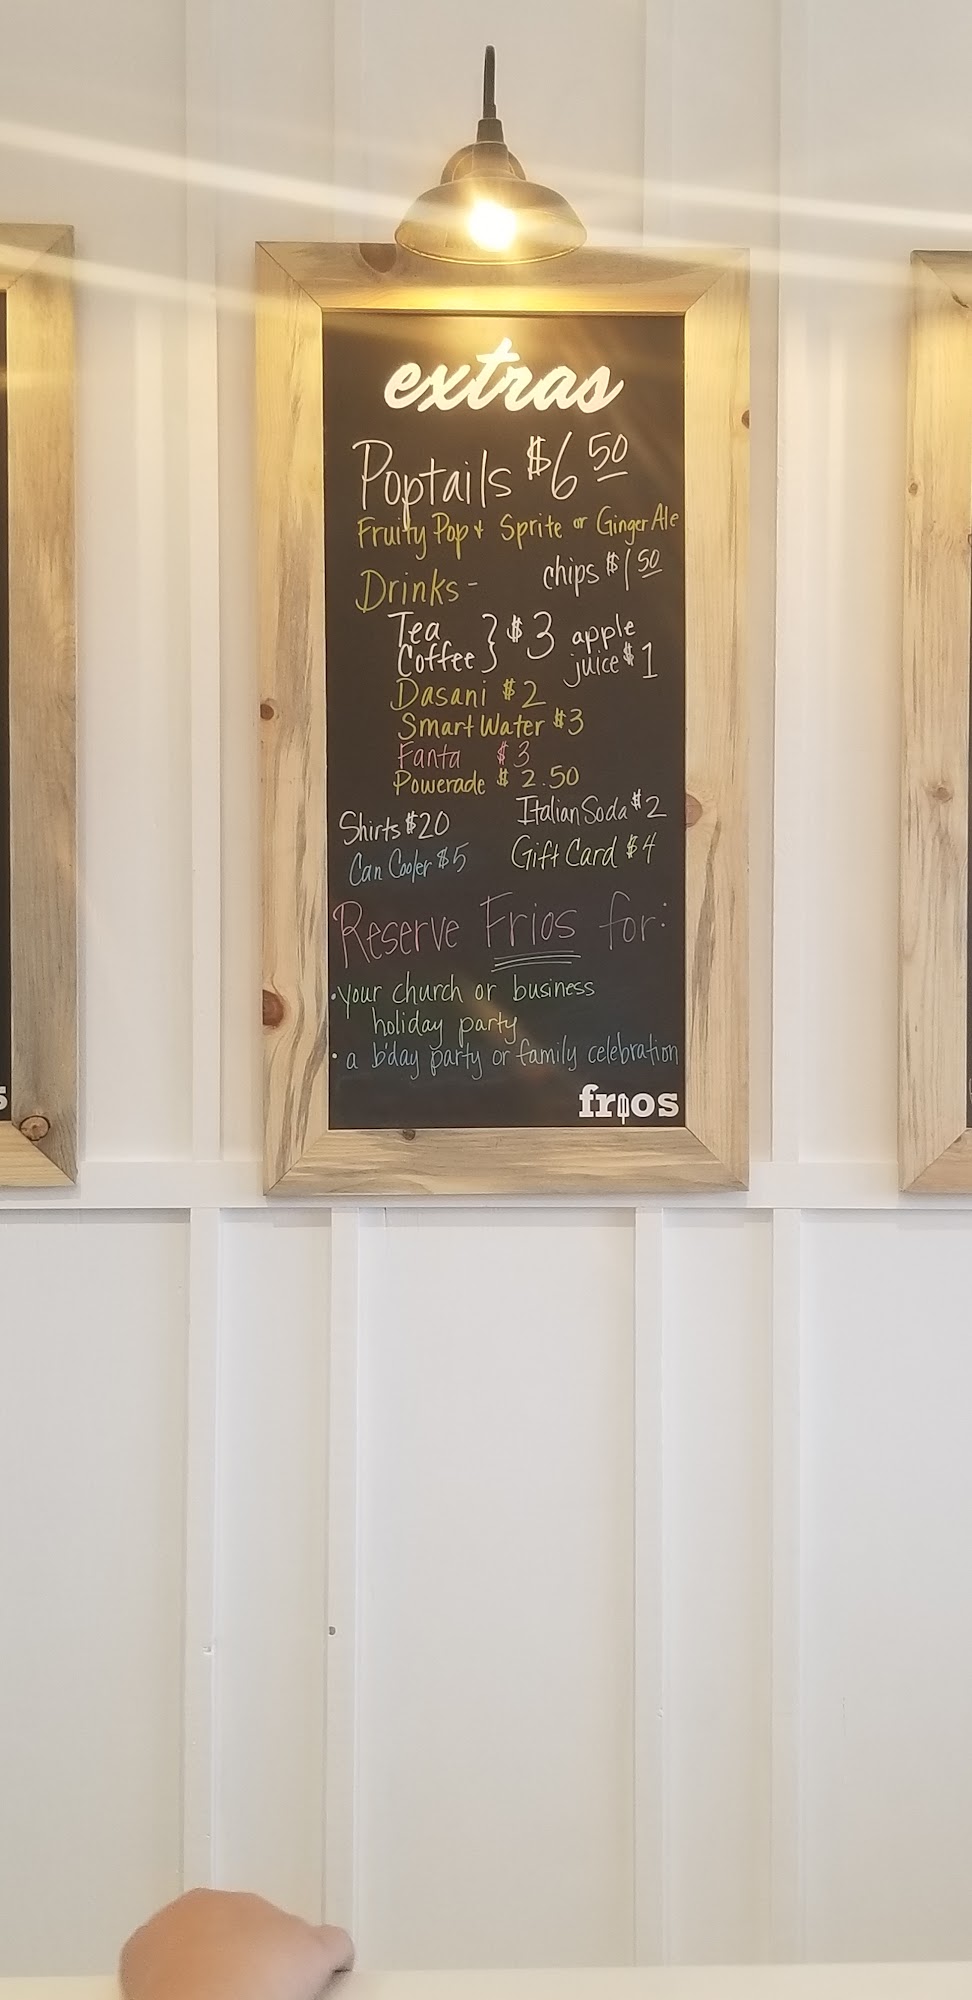 extras
Poptails $6 50
Fruity Pop + Sprite or Ginger Ale
Drinks - chips $1 50
Tea
Coffee } $3 apple juice $1
Dasani $2
Smart Water $3
Fanta $3
Powerade $2.50
Shirts $20 Italian Soda $2
Can Cooler $5 Gift Card $4
Reserve Frios for:
• your church or business
holiday party
• a b'day party or family celebration
frios
s